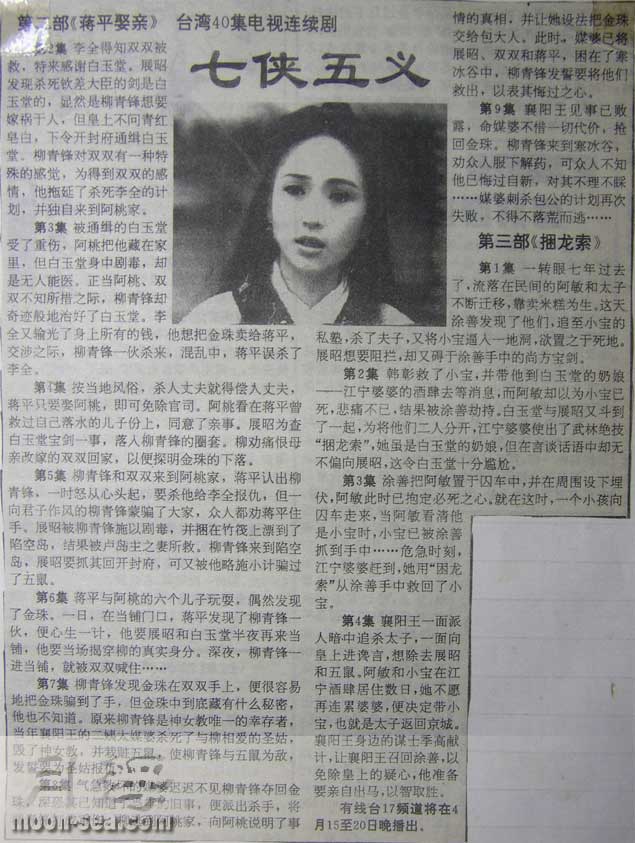 第二部《蒋平娶亲》 台湾40集电视连续剧
七侠五义
第2集 李全得知双双被
救，特来感谢白玉堂。展昭
发现杀死钦差大臣的剑是白
玉堂的，显然是柳青锋想要
嫁祸于人，但皇上不问青红
皂白，下令开封府通缉白玉
堂。柳青锋对双双有一种特
殊的感觉，为得到双双的感
情，他拖延了杀死李全的计
划，并独自来到阿桃家。
第3集 被通缉的白玉堂
受了重伤，阿桃把他藏在家
里，但白玉堂身中剧毒，却
是无人能医。正当阿桃、双
双不知所措之际，柳青锋却
奇迹般地治好了白玉堂。李
全又输光了身上所有的钱，他想把金珠卖给蒋平，
交涉之际，柳青锋一伙杀来，混乱中，蒋平误杀了
李全。
第4集 按当地风俗，杀人丈夫就得偿人丈夫，
蒋平只要娶阿桃，即可免除官司。阿桃看在蒋平曾
救过自己落水的儿子份上，同意了亲事。展昭为查
白玉堂宝剑一事，落入柳青锋的圈套。柳劝痛恨母
亲改嫁的双双回家，以便探明金珠的下落。
第5集 柳青锋和双双来到阿桃家，蒋平认出柳
青锋，一时怒从心头起，要杀他给李全报仇，但一
向君子作风的柳青锋蒙骗了大家，众人都劝蒋平住
手。展昭被柳青锋施以剧毒，并捆在竹筏上漂到了
陷空岛，结果被卢岛主之妻所救。柳青锋来到陷空
岛，展昭要抓其回开封府，可又被他略施小计骗过
了五鼠。
第6集 蒋平与阿桃的六个儿子玩耍，偶然发现
了金珠。一日，在当铺门口，蒋平发现了柳青锋一
伙，便心生一计，他要展昭和白玉堂半夜再来当
铺，他要当场揭穿柳的真实身分。深夜，柳青锋一
进当铺，就被双双喊住……
第7集 柳青锋发现金珠在双双手上，便很容易
地把金珠骗到了手，但金珠中到底藏有什么秘密，
他也不知道。原来柳青锋是神女教唯一的幸存者，
当年襄阳王的二姨太媒婆杀死了与柳相爱的圣姑，
毁了神女教，并栽赃五鼠，使柳青锋与五鼠为敌，
发誓要为圣姑报
第8集 气急 迟迟不见柳青锋夺回金
珠，深恐其已知道 的旧事，便派出杀手，将
阿桃家，向阿桃说明了事
情的真相，并让她设法把金珠
交给包大人。此时，媒婆已将
展昭、双双和蒋平，困在了寒
冰谷中，柳青锋发誓要将他们
救出，以表其悔过之心。
第9集 襄阳王见事已败
露，命媒婆不惜一切代价，抢
回金珠。柳青锋来到寒冰谷，
劝众人服下解药，可众人不知
他已悔过自新，对其不理不睬
……媒婆刺杀包公的计划再次
失败，不得不落荒而逃……
第三部《捆龙索》
第1集 一转眼七年过去
了，流落在民间的阿敏和太子
不断迁移，靠卖米糕为生。这天
涂善发现了他们，追至小宝的
私塾，杀了夫子，又将小宝逼入一地洞，欲置之于死地。
展昭想要阻拦，却又碍于涂善手中的尚方宝剑。
第2集 韩彰救了小宝，并带他到白玉堂的奶娘
——江宁婆婆的酒肆去等消息，而阿敏却以为小宝已
死，悲痛不已，结果被涂善劫持。白玉堂与展昭又斗到
了一起，为将他们二人分开，江宁婆婆使出了武林绝技
“捆龙索”，她虽是白玉堂的奶娘，但在言谈话语中却无
不偏向展昭，这令白玉堂十分尴尬。
第3集 涂善把阿敏置于囚车中，并在周围设下埋
伏，阿敏此时已抱定必死之心。就在这时，一个小孩向
囚车走来，当阿敏看清他
是小宝时，小宝已被涂善
抓到手中……危急时刻，
江宁婆婆赶到，她用“困龙
索”从涂善手中救回了小
宝。
第4集 襄阳王一面派
人暗中追杀太子，一面向
皇上进谗言，想除去展昭
和五鼠。阿敏和小宝在江
宁酒肆居住数日，她不愿
再连累婆婆，便决定带小
宝，也就是太子返回京城。
襄阳王身边的谋士季高献
计，让襄阳王召回涂善，以
免除皇上的疑心，他准备
要亲自出马，以智取胜。
有线台17频道将在4
月15至20日晚播出。
moon-sea.com